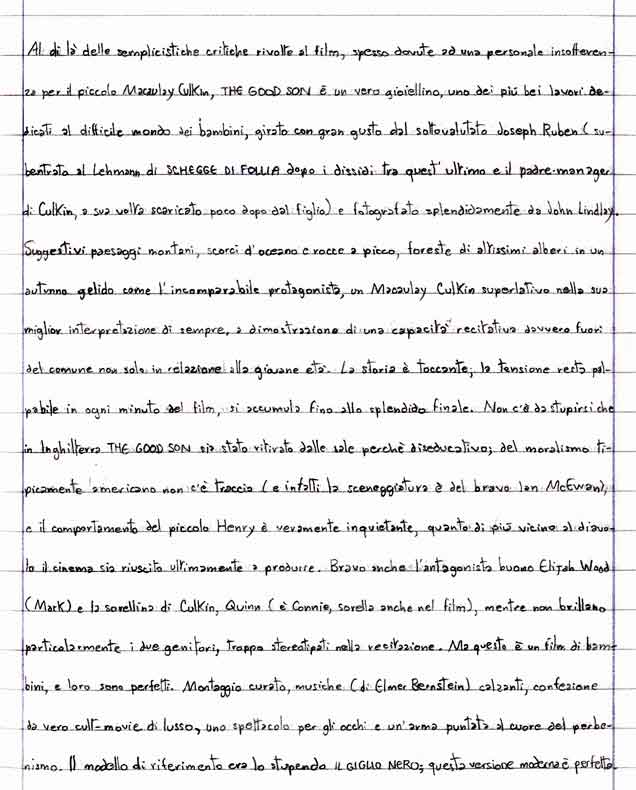 Al di là delle semplicistiche critiche rivolte al film, spesso dovute ad una personale insofferen-
za per il piccolo Macaulay Culkin, THE GOOD SON è un vero gioiellino, uno dei più bei lavori de-
dicati al difficile mondo dei bambini, girato con gran gusto dal sottovalutato Joseph Ruben (su-
bentrato al Lehmann di SCHEGGE DI FOLLIA dopo i dissidi tra quest'ultimo e il padre-manager
di Culkin, a sua volta scaricato poco dopo dal figlio) e fotografato splendidamente da John Lindley.
Suggestivi paesaggi montani, scorci d'oceano e rocce a picco, foreste di altissimi alberi in un
autunno gelido come l'incomparabile protagonista, un Macaulay Culkin superlativo nella sua
miglior interpretazione di sempre, a dimostrazione di una capacità recitativa davvero fuori
del comune non solo in relazione alla giovane età. La storia è toccante; la tensione resta pal-
pabile in ogni minuto del film, si accumula fino allo splendido finale. Non c'è da stupirsi che
in Inghilterra THE GOOD SON sia stato ritirato dalle sale perchè diseducativo; del moralismo ti-
picamente americano non c'è traccia (e infatti la sceneggiatura è del bravo Ian McEwan),
e il comportamento del piccolo Henry è veramente inquietante, quanto di più vicino al diavo-
lo il cinema sia riuscito ultimamente a produrre. Bravo anche l'antagonista buono Elijah Wood
(Mark) e la sorellina di Culkin, Quinn (è Connie, sorella anche nel film), mentre non brillano
particolarmente i due genitori, troppo stereotipati nella recitazione. Ma questo è un film di bam-
bini, e loro sono perfetti. Montaggio curato, musiche (di Elmer Bernstein) calzanti, confezione
da vero cult-movie di lusso, uno spettacolo per gli occhi e un'arma puntata al cuore del perbe-
nismo. Il modello di riferimento era lo stupendo IL GIGLIO NERO; questa versione moderna è perfetta.